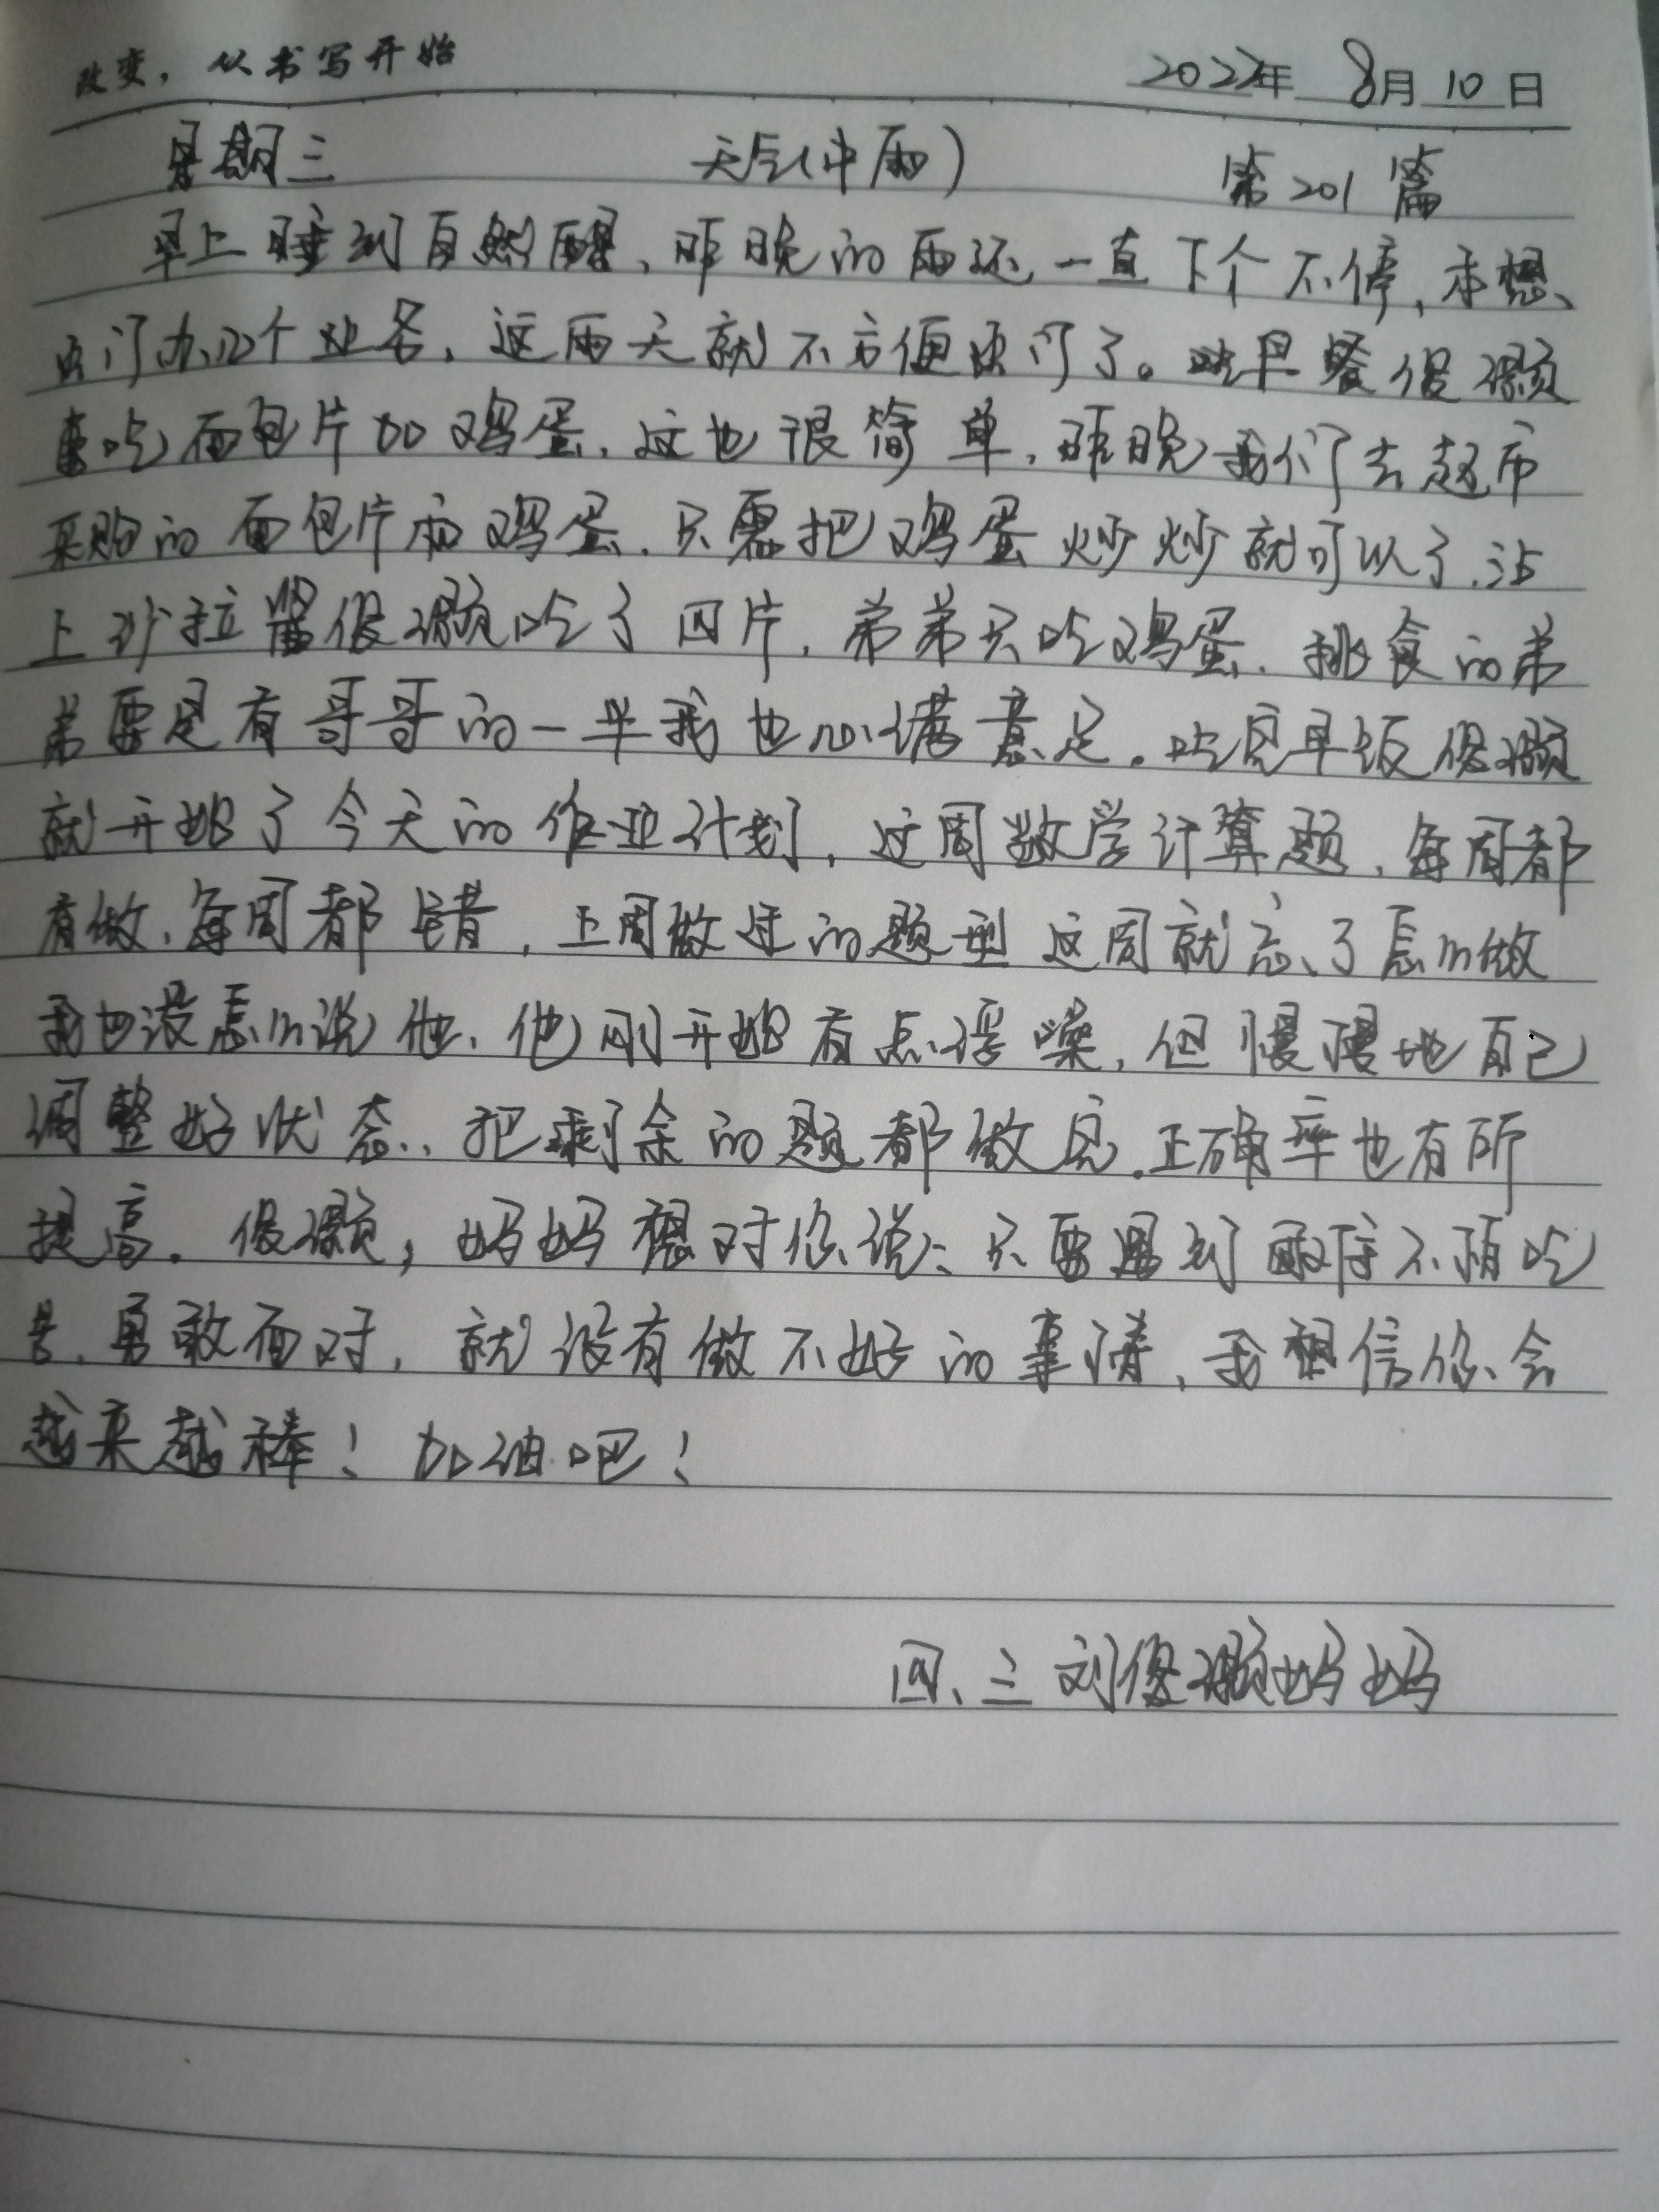 改变，从书写开始 2022年 8月 10日
星期三 天气(中雨) 第201篇
早上睡到自然醒、昨晚的雨还一直下个不停，本想
出门办个业务，这雨天就不方便出门了。吃早餐俊灏
要吃面包片加鸡蛋，这也很简单，昨晚我们去超市
采购的面包片和鸡蛋，只需把鸡蛋炒炒就可以了，沾
上沙拉酱俊灏吃了四片，弟弟只吃鸡蛋，挑食的弟
弟要是有哥哥的一半我也心满意足。吃完早饭俊灏
就开始了今天的作业计划，这周数学计算题，每周都
有做，每周都错，上周做过的题型这周就忘了怎么做
我也没怎么说他，他刚开始有点浮噪，但慢慢地自己
调整好状态，把剩余的题都做完，正确率也有所
提高。俊灏，妈妈想对你说：只要遇到困难不怕吃
苦，勇敢面对，就没有做不好的事情，我相信你会
越来越棒！加油吧！
四、三刘俊灏妈妈